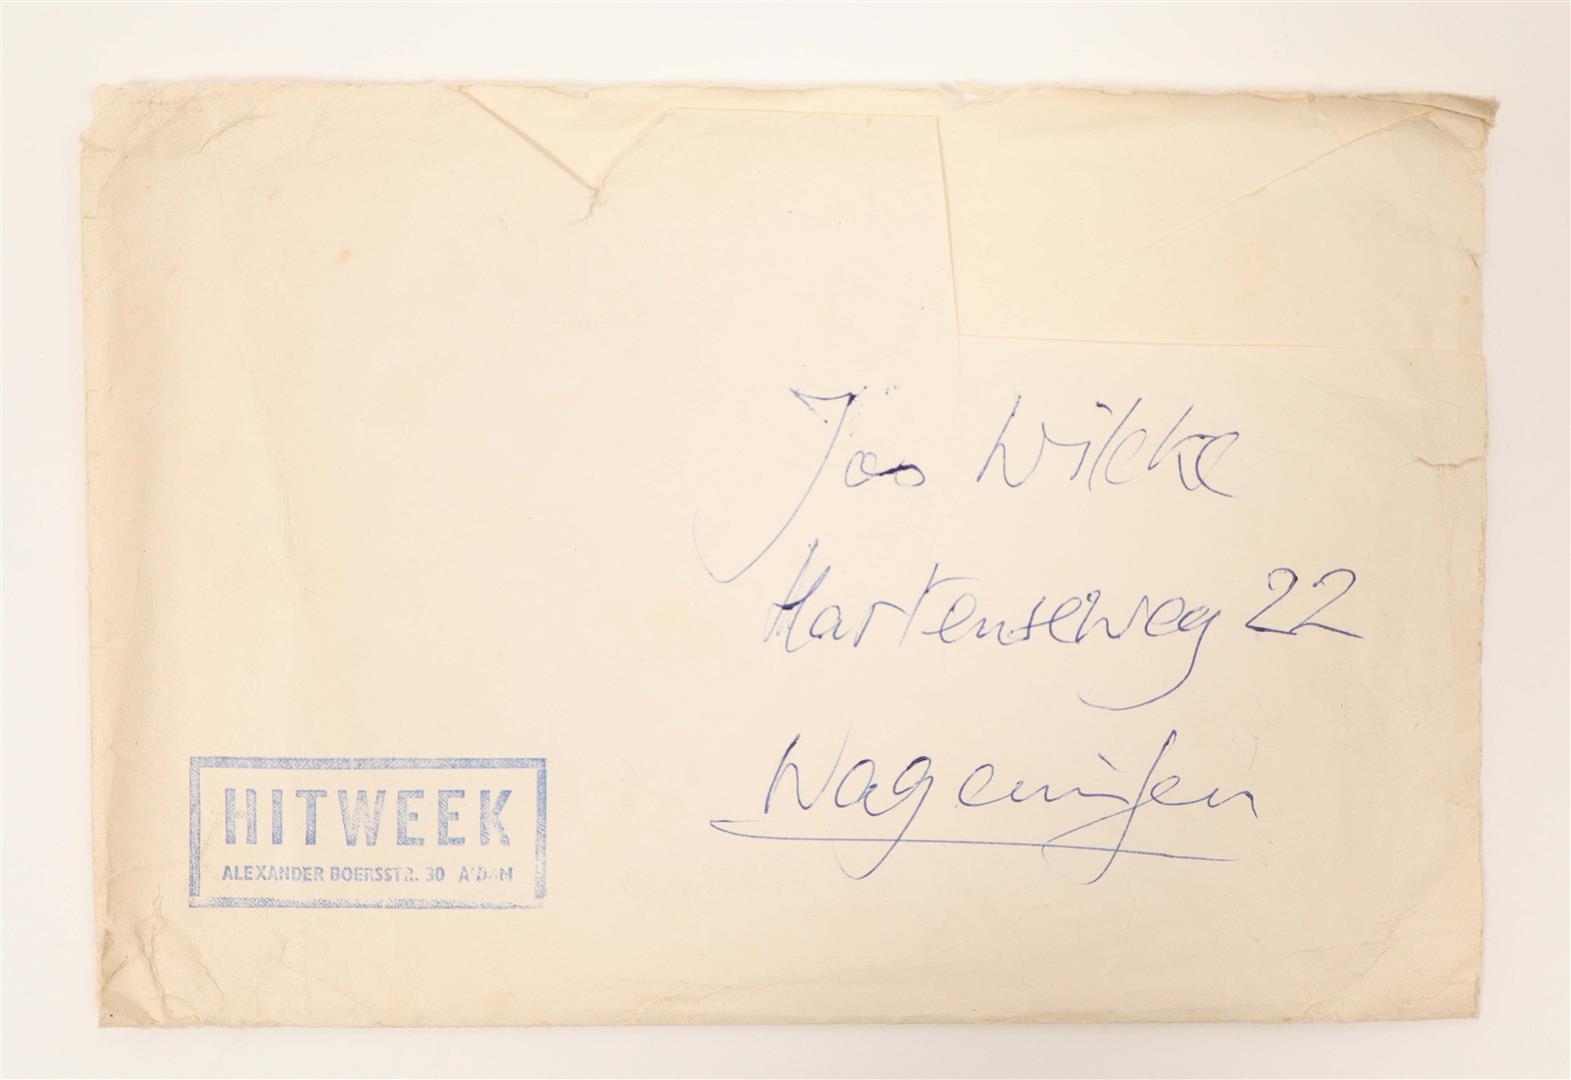 Jos Wilcke
Hartenseweg 22
Wageningen
HITWEEK
ALEXANDER BOERSSTR. 30 A'DAM